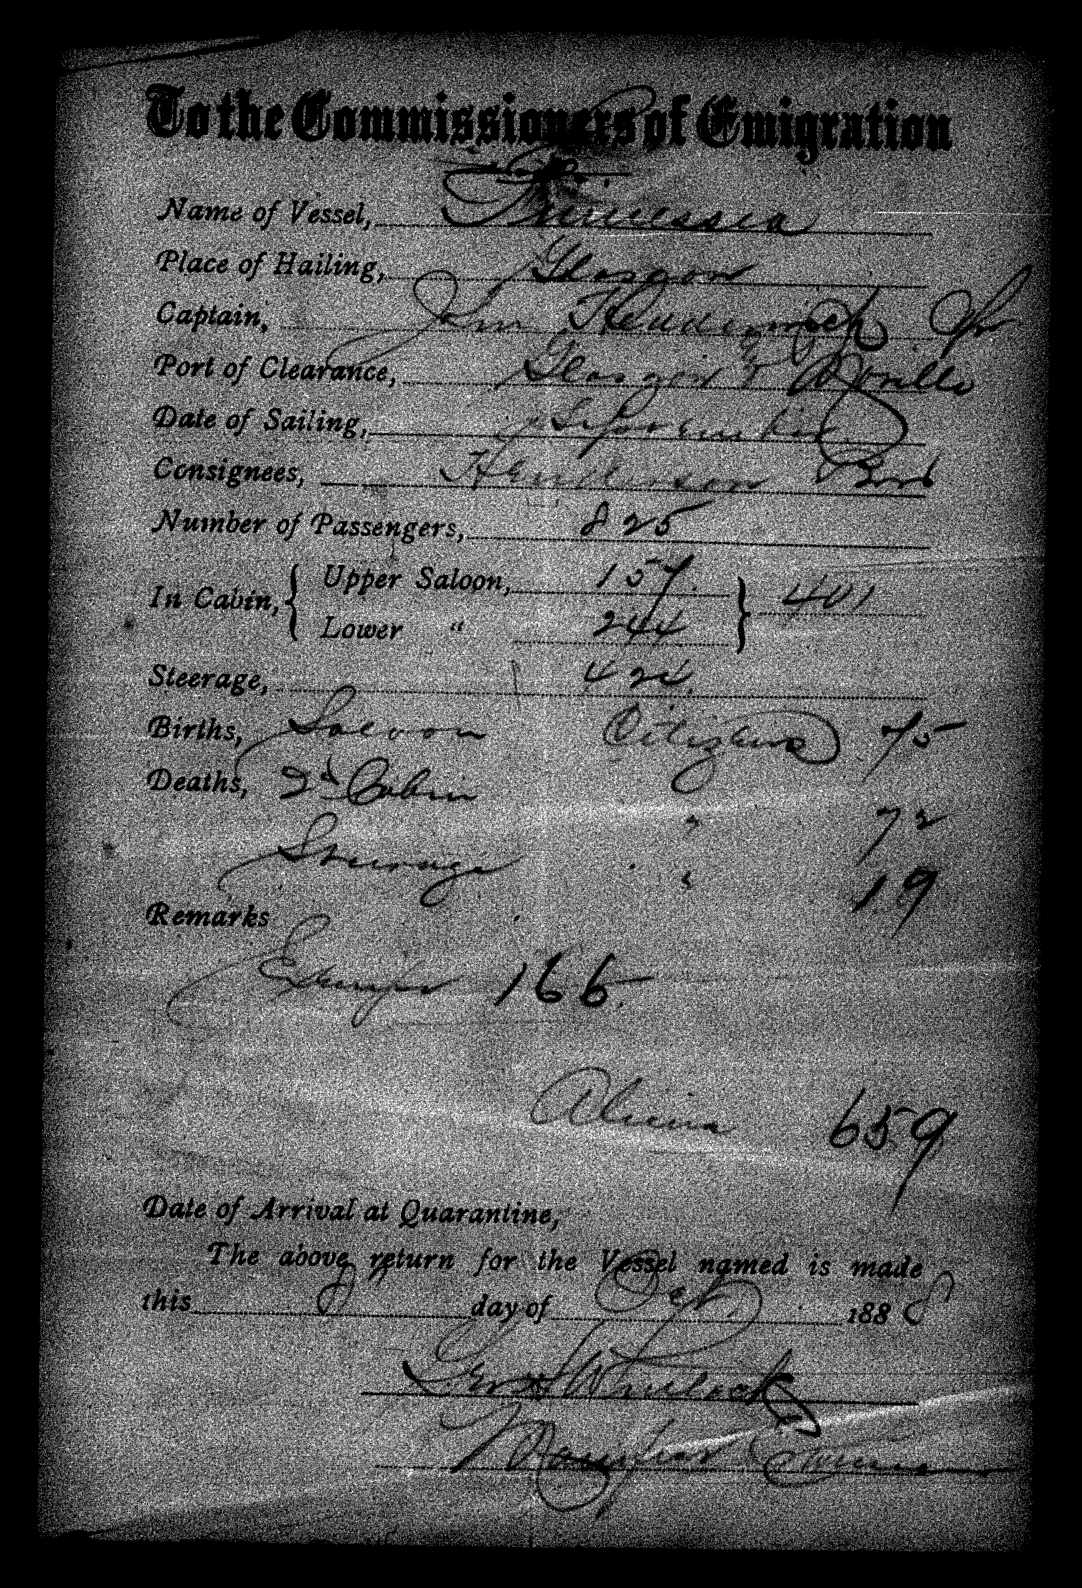 To the Commissioners of Emigration
Name of Vessel, Furnessia
Place of Hailing, Glasgow
Captain, John Hedderwick Jr
Port of Clearance, Glasgow & Moville
Date of Sailing,
Consignees, Henderson Bros
Number of Passengers, 825
In Cabin, { Upper Saloon, 157. } 401
Lower " 244
Steerage, 424.
Births, Saloon Citizens 75
Deaths, 2d Cabin " 72
Steerage " 19
Remarks
Exempt 166.
Aliens 659
Date of Arrival at Quarantine,
The above return for the Vessel named is made
this 8 day of Oct. 1888